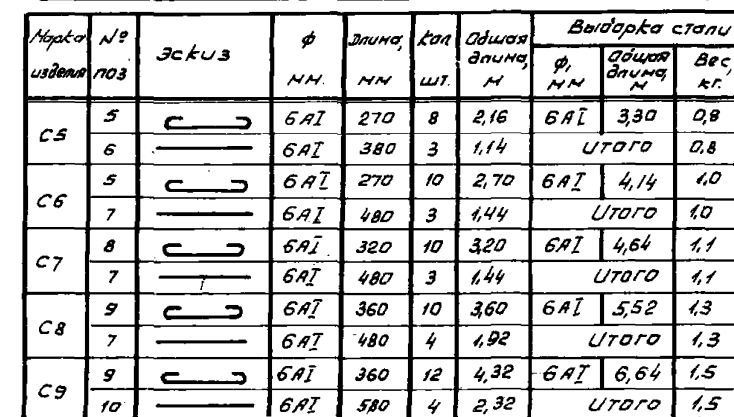 Марка изделия № поз Эскиз ф мм. Длина, мм Кол шт. Общая длина, м Выборка стали
ф, мм Общая длина, м Вес, кг.
С5 5 6АI 270 8 2,16 6АI 3,30 0,8
6 6АI 380 3 1,14 Итого 0,8
С6 5 6АI 270 10 2,70 6АI 4,14 1,0
7 6АI 480 3 1,44 Итого 1,0
С7 8 6АI 320 10 3,20 6АI 4,64 1,1
7 6АI 480 3 1,44 Итого 1,1
С8 9 6АI 360 10 3,60 6АI 5,52 1,3
7 6АI 480 4 1,92 Итого 1,3
С9 9 6АI 360 12 4,32 6АI 6,64 1,5
10 6АI 580 4 2,32 Итого 1,5